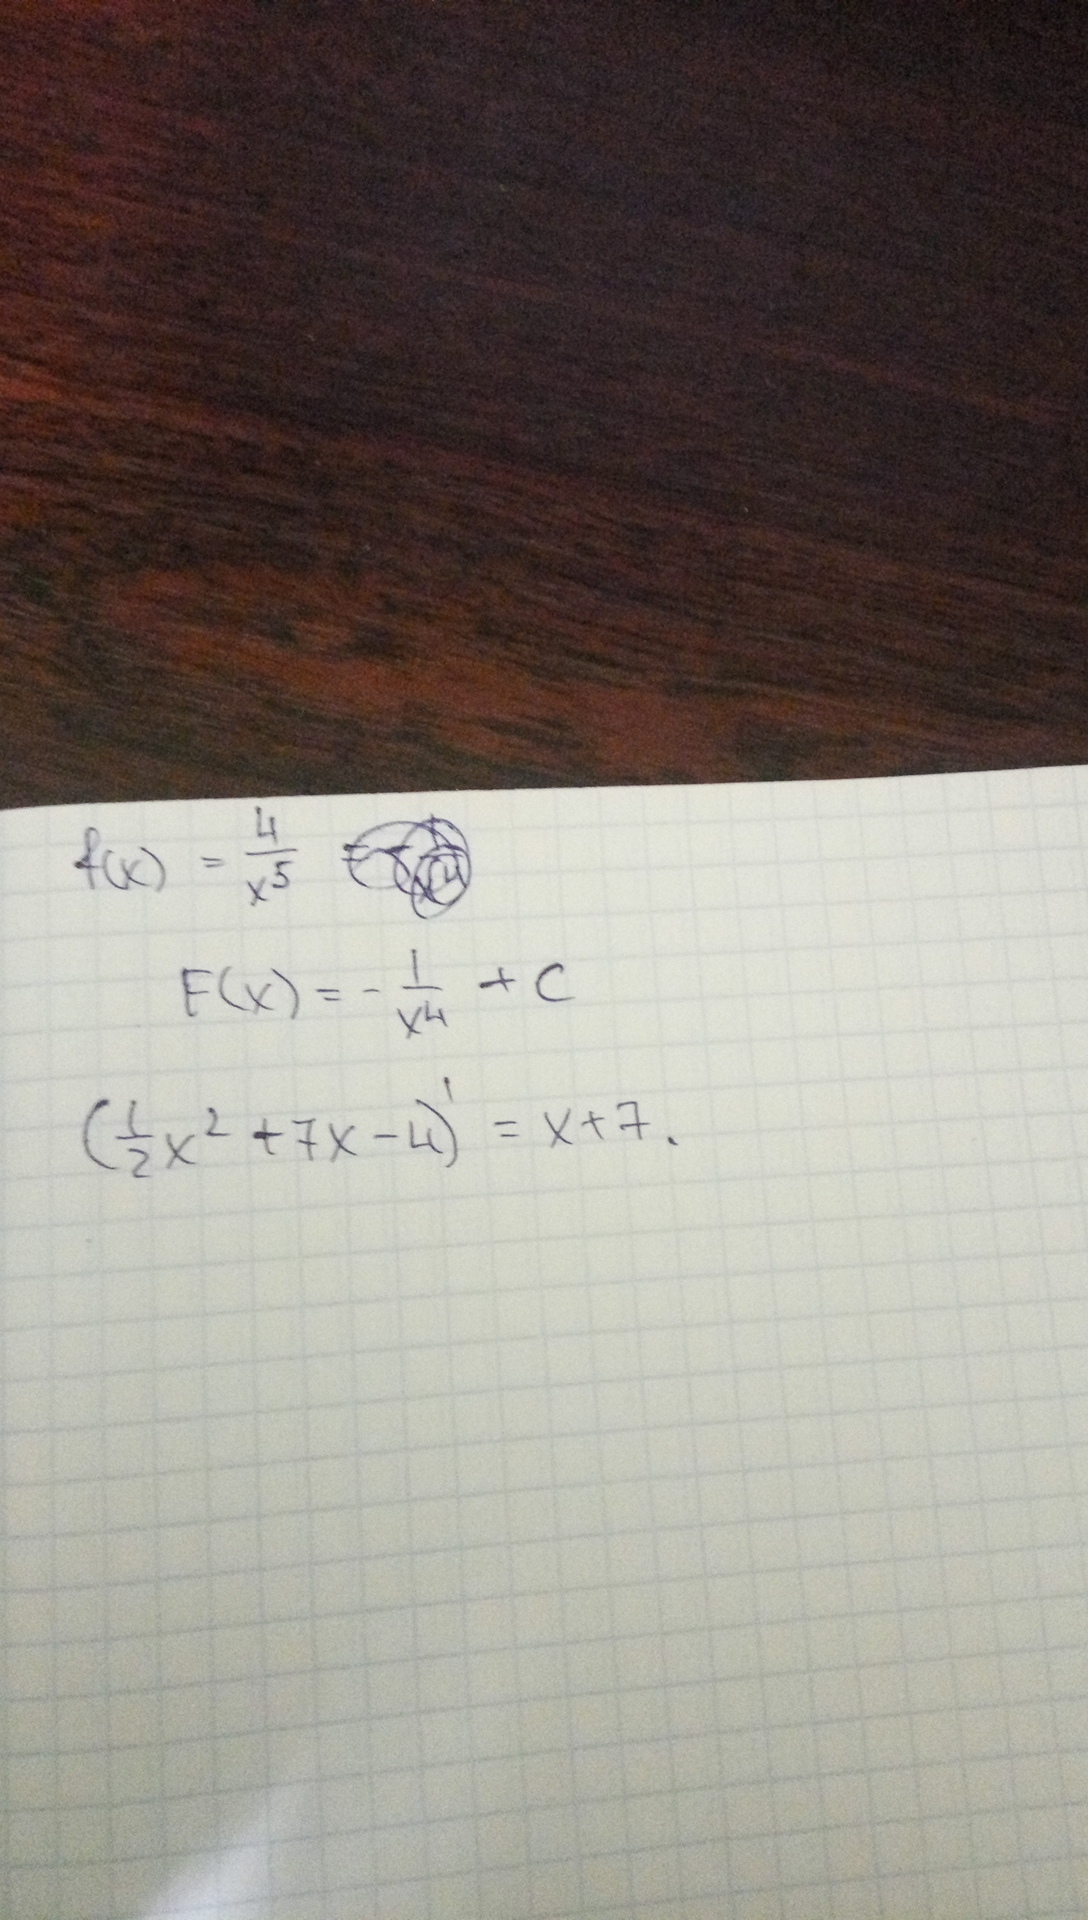 f(x) = 4/x^5
F(x) = - 1/x^4 + C
(1/2 x^2 + 7x - 4)' = x + 7.